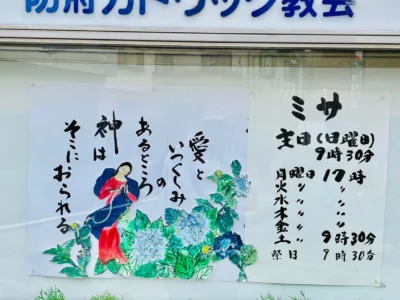 防府カトリック教会
愛と
いつくしみ
の
あるところ
神は
そこにおられる
ミサ
主日(日曜日)
9時30分
月曜日 17時
火 〃 〃
水 〃 〃
木 〃 〃
金 〃 〃
土 〃 9時30分
祭日 9時30分